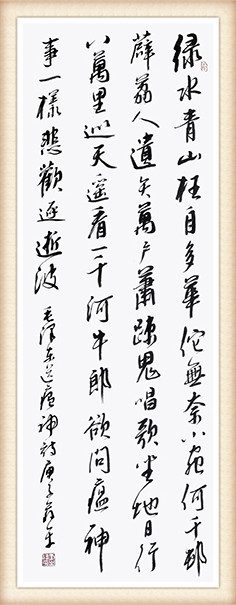 绿水青山枉自多華佗無奈小虫何千邨
薜荔人遺矢萬户蕭疎鬼唱歌坐地日行
八萬里巡天遥看一千河牛郎欲問瘟神
事一樣悲歡逐逝波
毛泽东送瘟神詩庚子